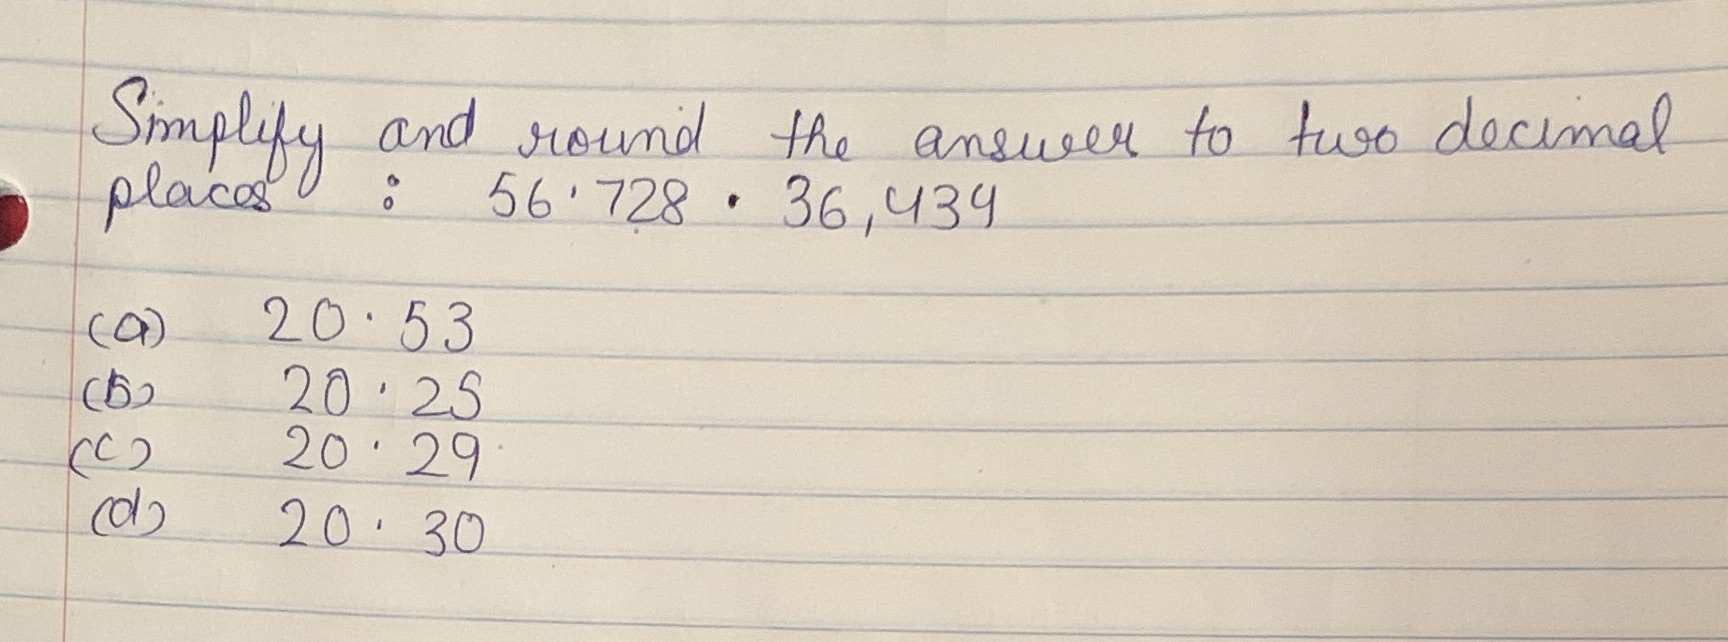 Simplify and round the answer to two decimal
places : 56.728 · 36,434
(a) 20.53
(b) 20.25
(c) 20.29
(d) 20.30